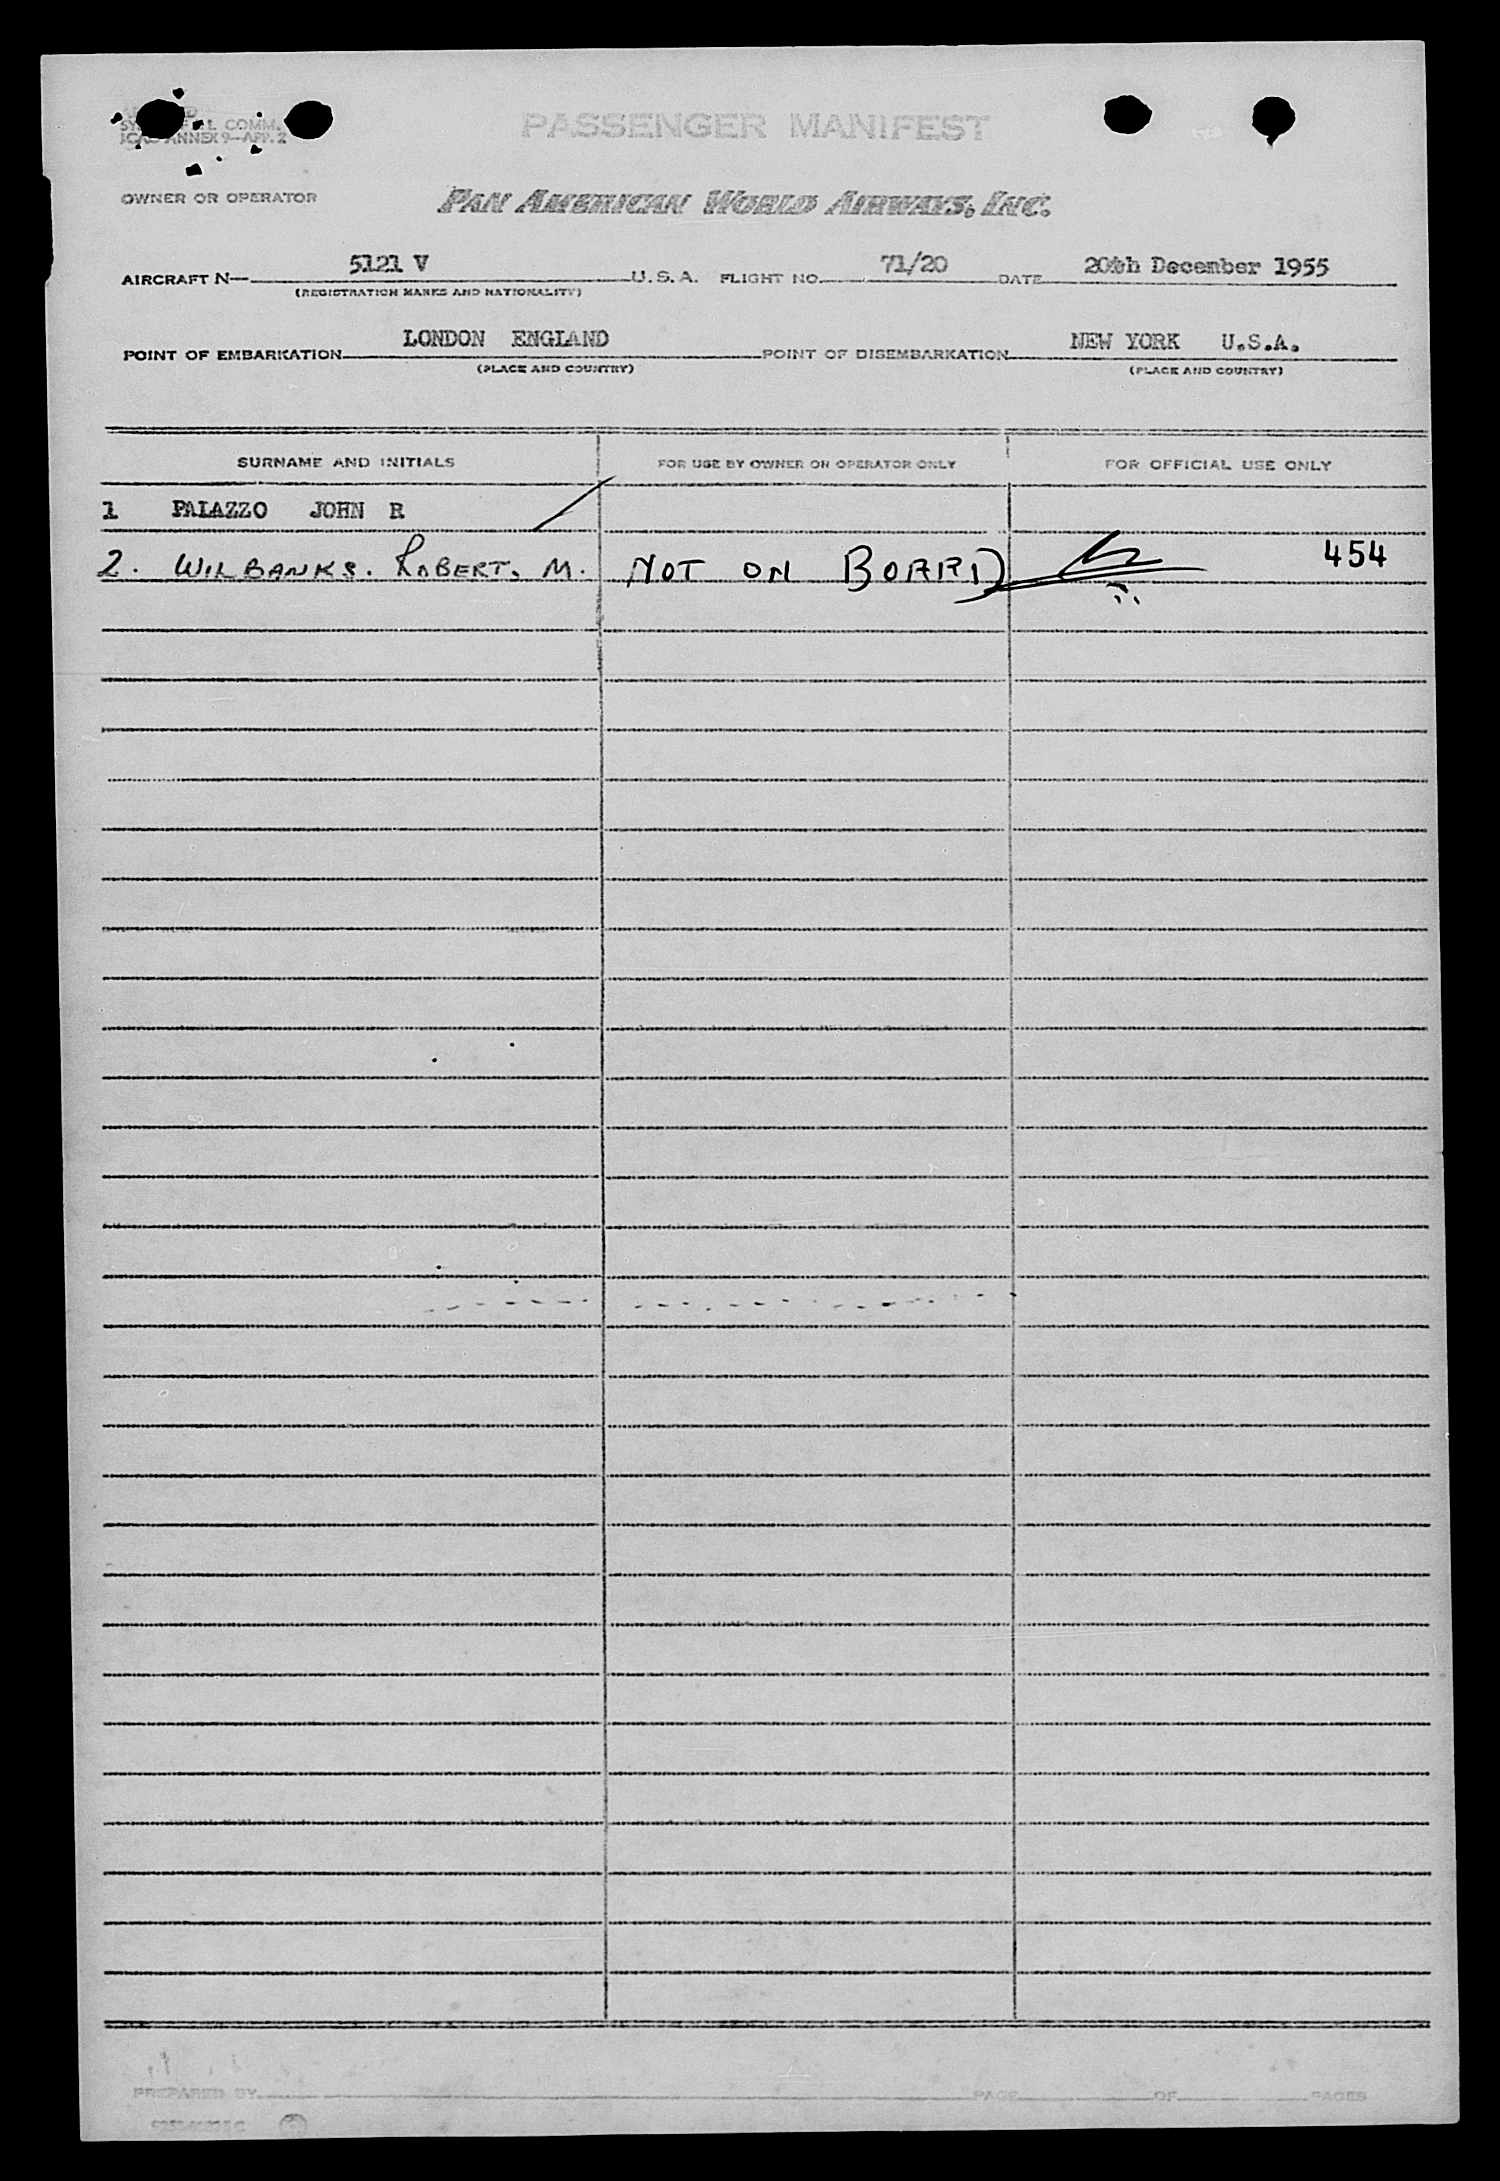 COMM.
ANNEX 9—APP. 2
PASSENGER MANIFEST
OWNER OR OPERATOR PAN AMERICAN WORLD AIRWAYS, INC.
AIRCRAFT N— 5121 V U. S. A. FLIGHT NO. 71/20 DATE 20th December 1955
(REGISTRATION MARKS AND NATIONALITY)
POINT OF EMBARKATION LONDON ENGLAND POINT OF DISEMBARKATION NEW YORK U.S.A.
(PLACE AND COUNTRY) (PLACE AND COUNTRY)
SURNAME AND INITIALS FOR USE BY OWNER OR OPERATOR ONLY FOR OFFICIAL USE ONLY
1 PALAZZO JOHN R
2. WILBANKS. ROBERT. M. NOT ON BOARD 454
PREPARED BY PAGE OF PAGES